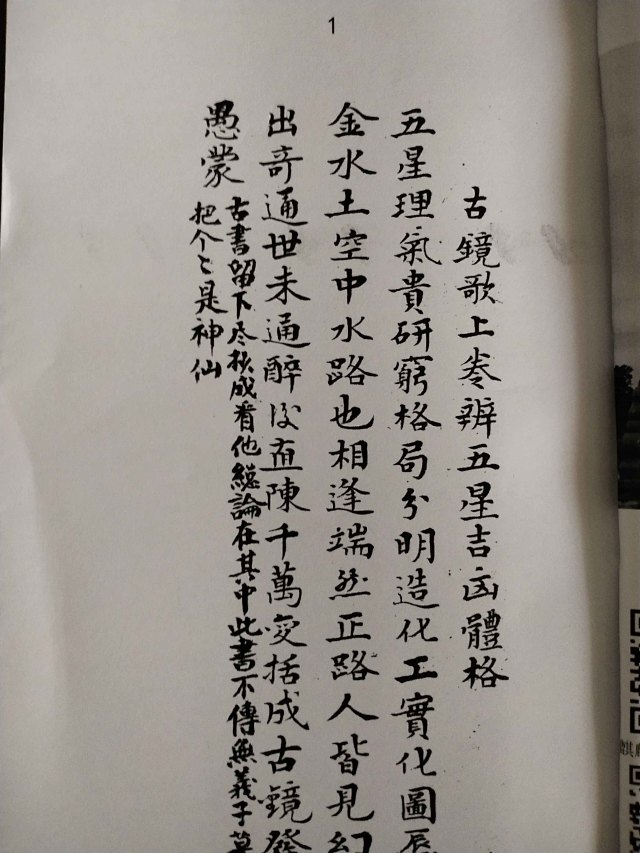 1
古鏡歌上卷辨五星吉凶體格
五星理氣貴研窮格局分明造化工實化圖
金水土空中水路也相逢端然正路人皆見幻
出奇通世未通醉後直陳千萬变括成古鏡發
愚蒙
古書留下尽秋成看他總論在其中此書不傳無義子莫
把个々是神仙